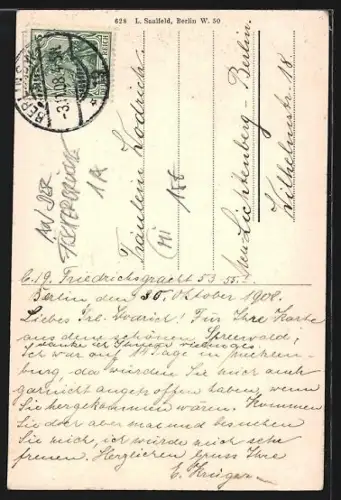 628 L. Saalfeld, Berlin W. 30
BERLIN
-3.11.08.
AN DER
1A
Fräulein Kodrich
III 186
Neu-Lichtenberg-Berlin.
Wilhelmstr. 18
C. 19. Friedrichsgracht 53-55.
Berlin den 30. Oktober 1908.
Liebes Frl. Kodrich! Für Ihre Karte
aus dem schönen Spreewald,
danke ich Ihnen
Ich war auf 14 Tage in Mecklen-
burg, da würden Sie mich auch
garnicht angetroffen haben, wenn
Sie hergekommen wären. Kommen
Sie doch aber mal und besuchen
Sie mich, ich würde mich sehr
freuen. Herzlichen Gruss Ihre
E. Krüger